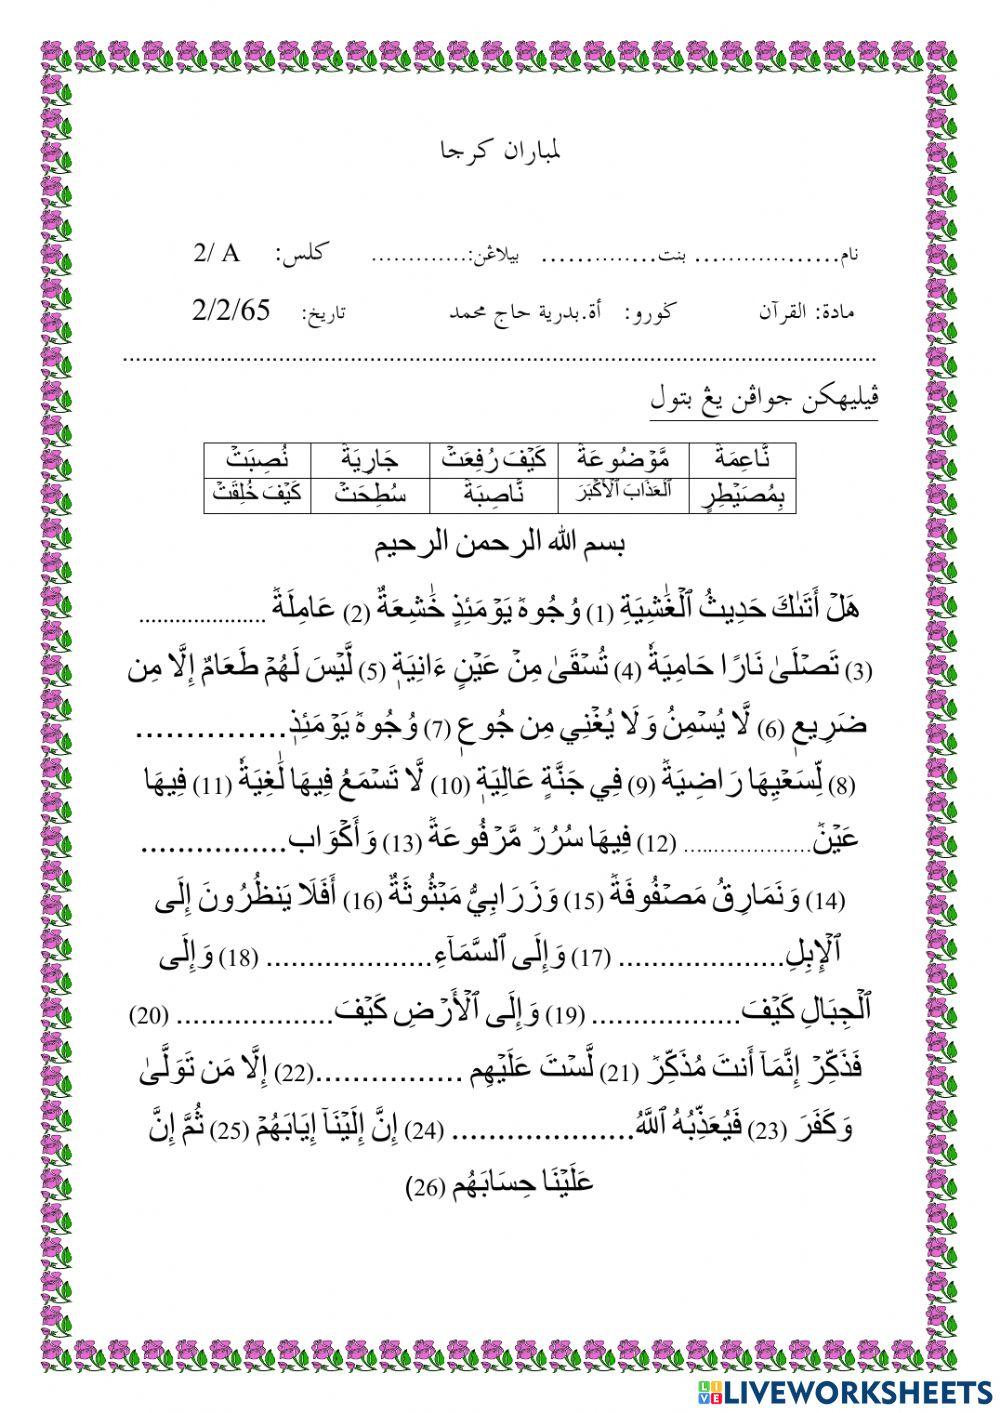 لمباران كرجا
نام................ بنت.............. بيلاڠن:............. كلس: 2/ A
مادة: القرآن ݢورو: أة.بدرية حاج محمد تاريخ: 2/2/65
ڤيليهكن جواڤن يڠ بتول
نَّاعِمَةٞ مَّوۡضُوعَةٞ كَيۡفَ رُفِعَتۡ جَارِيَةٞ نُصِبَتۡ
بِمُصَيۡطِرٍ ٱلۡعَذَابَ ٱلۡأَكۡبَرَ نَّاصِبَةٞ سُطِحَتۡ كَيۡفَ خُلِقَتۡ
بسم الله الرحمن الرحيم
هَلۡ أَتَىٰكَ حَدِيثُ ٱلۡغَٰشِيَةِ (1) وُجُوهٞ يَوۡمَئِذٍ خَٰشِعَةٌ (2) عَامِلَةٞ .....................
(3) تَصۡلَىٰ نَارًا حَامِيَةٗ (4) تُسۡقَىٰ مِنۡ عَيۡنٍ ءَانِيَةٖ (5) لَّيۡسَ لَهُمۡ طَعَامٌ إِلَّا مِن
ضَرِيعٖ (6) لَّا يُسۡمِنُ وَلَا يُغۡنِي مِن جُوعٖ (7) وُجُوهٞ يَوۡمَئِذٖ...............
(8) لِّسَعۡيِهَا رَاضِيَةٞ (9) فِي جَنَّةٍ عَالِيَةٖ (10) لَّا تَسۡمَعُ فِيهَا لَٰغِيَةٗ (11) فِيهَا
عَيۡنٞ..................... (12) فِيهَا سُرُرٞ مَّرۡفُوعَةٞ (13) وَأَكۡوَاب...............
(14) وَنَمَارِقُ مَصۡفُوفَةٞ (15) وَزَرَابِيُّ مَبۡثُوثَةٌ (16) أَفَلَا يَنظُرُونَ إِلَى
ٱلۡإِبِلِ.................... (17) وَإِلَى ٱلسَّمَآءِ.................... (18) وَإِلَى
ٱلۡجِبَالِ كَيۡفَ.................. (19) وَإِلَى ٱلۡأَرۡضِ كَيۡفَ................... (20)
فَذَكِّرۡ إِنَّمَآ أَنتَ مُذَكِّرٞ (21) لَّسۡتَ عَلَيۡهِم ..................(22) إِلَّا مَن تَوَلَّىٰ
وَكَفَرَ (23) فَيُعَذِّبُهُ ٱللَّهُ...................... (24) إِنَّ إِلَيۡنَآ إِيَابَهُمۡ (25) ثُمَّ إِنَّ
عَلَيۡنَا حِسَابَهُم (26)
LIVEWORKSHEETS